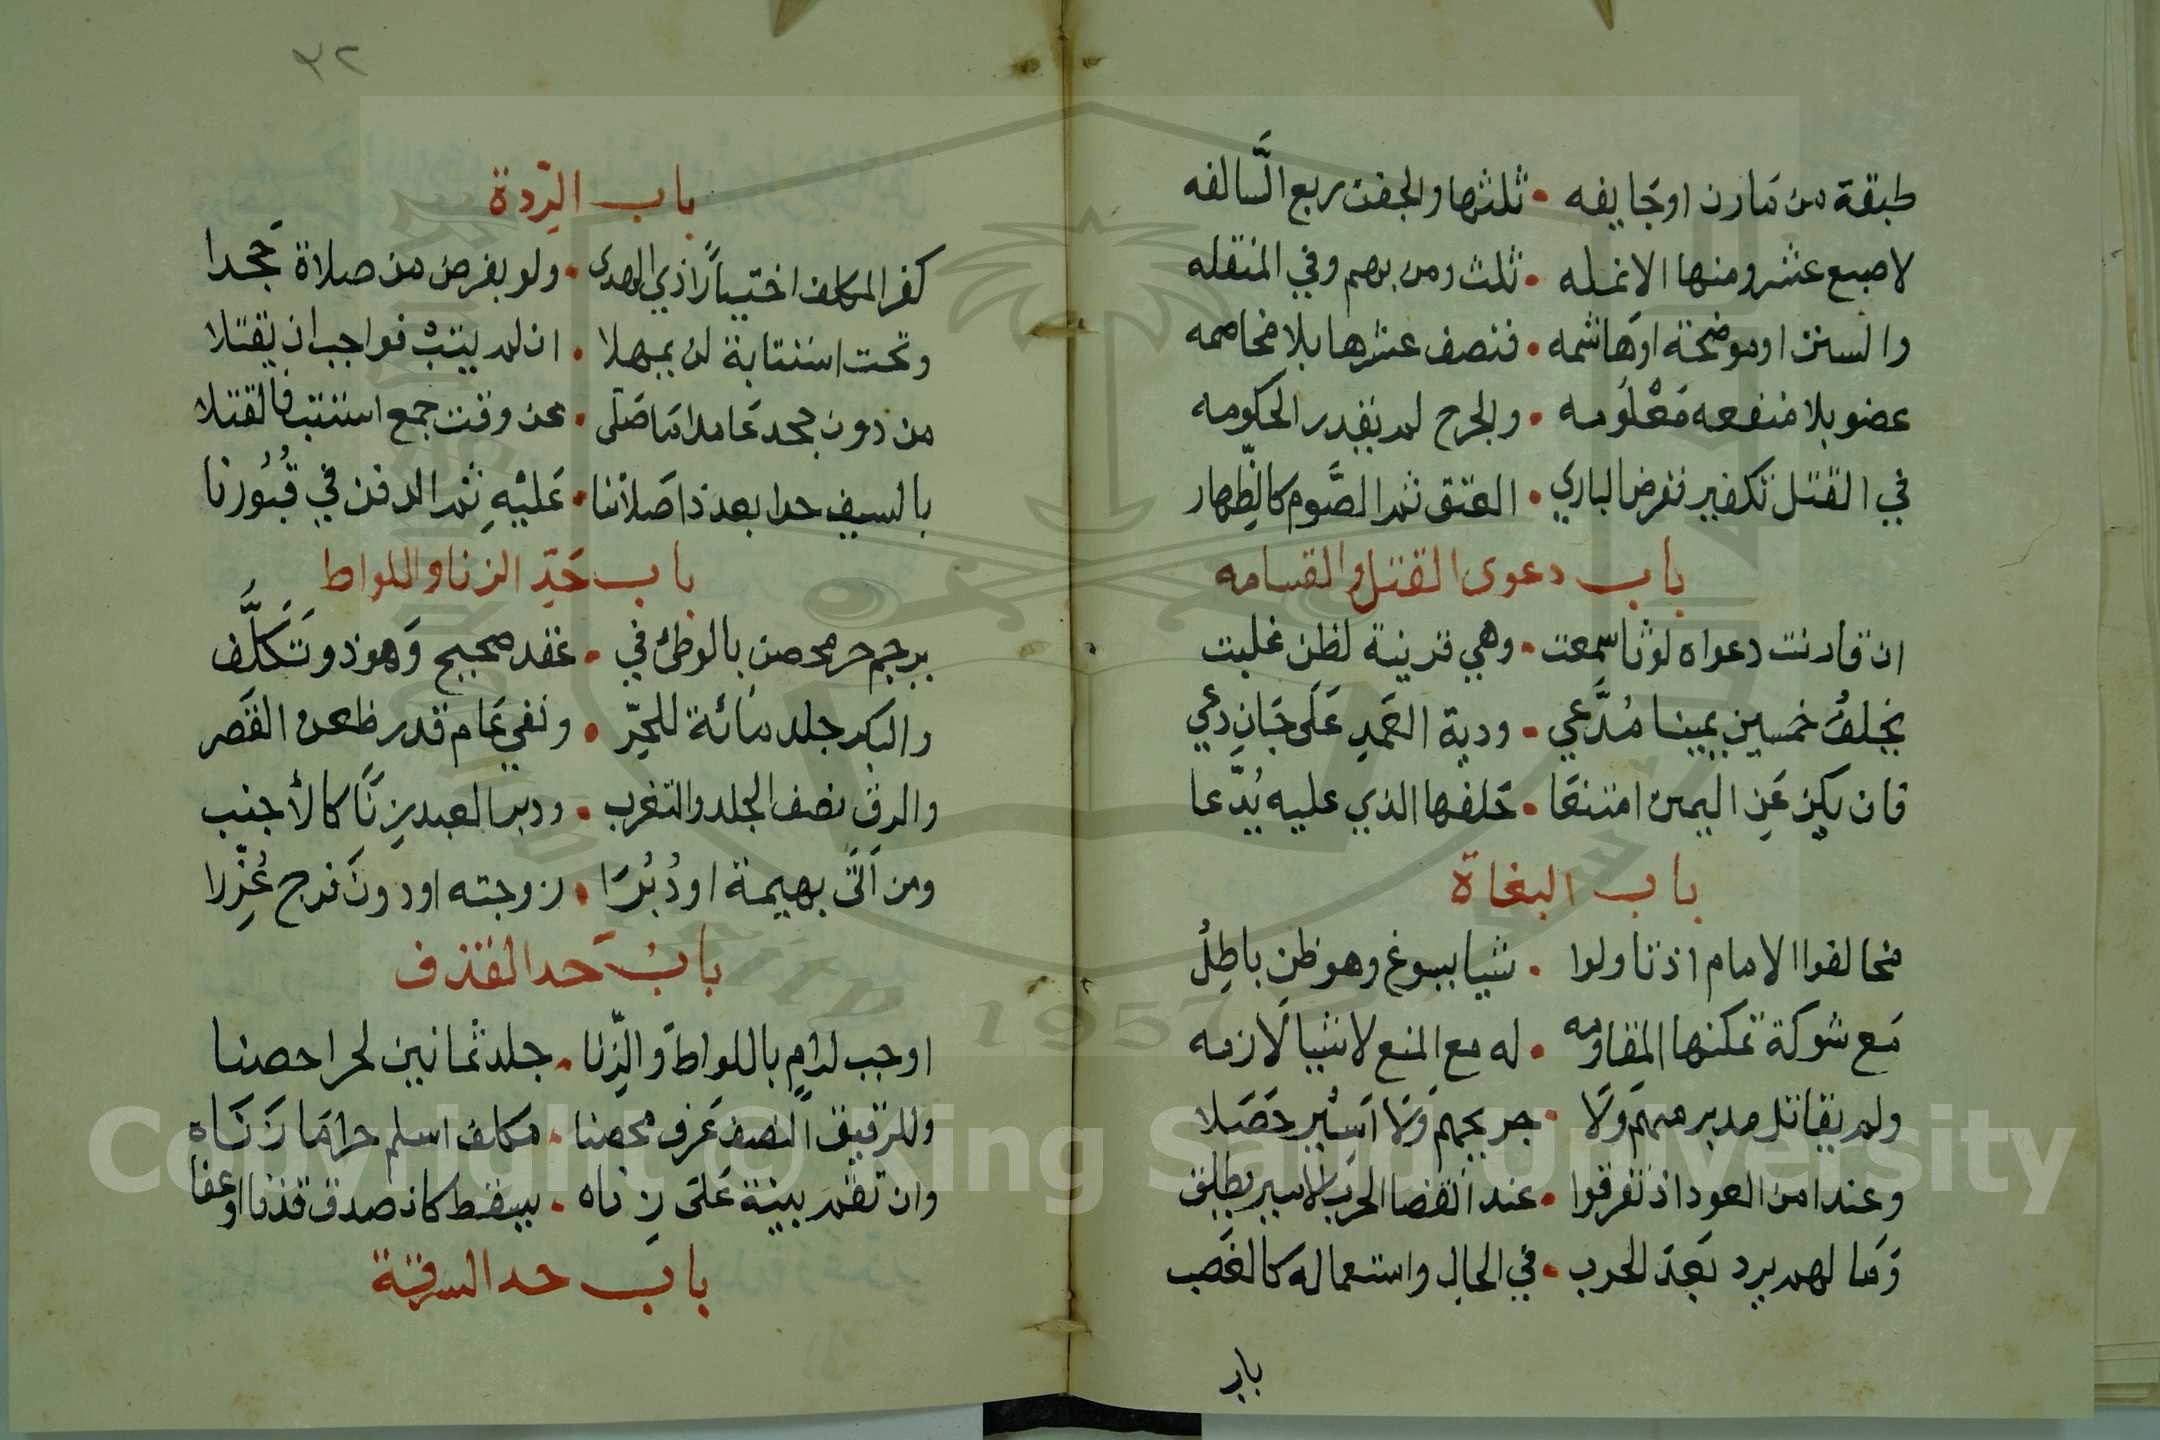 طبقة من مارن او جايفه • ثلثها والجفن ربع السالفه
لاصبع عشر ومنها الانمله • ثلث ومن بهم وفي المنقله
والسن او موضحة او هاشمه • فنصف عشرها بلا مخاصمه
عضو بلا منفعه معلومه • والجرح لم يقدر الحكومه
في القتل تكفير ففرض الباري • العتق ثم الصوم كالظهار
باب دعوى القتل والقسامه
ان قارنت دعواه لوثا سمعت • وهي قرينة لظن غلبت
يحلف خمسين يمينا مدعي • ودية العمد على جان دعي
فان يكن عن اليمين امتنعا • حلفها الذي عليه يدعا
باب البغاة
مخالفوا الامام اذ تاولوا • شيا يسوغ وهو ظن باطل
مع شوكة تمكنها المقاومه • له مع المنع لاشيا لازمه
ولم يقاتل مدبر منهم ولا • جريحهم ولا اسير حصلا
وعند امن العود اذ تفرقوا • عند انقضا الحرب لاسير يطلق
وما لهم يرد بعد الحرب • في الحال واستعماله كالغصب
باب
٣٢
باب الردة
كفر المكلف اختيارا ذي الهدى • ولو بفرض من صلاة جحدا
وتحت استتابة لن يمهلا • ان لم يتب فواجب ان يقتلا
من دون جحد عامدا ما صلى • عن وقت جمع استتب فالقتلا
بالسيف حدا بعد ذا صلاتنا • عليه ثم الدفن في قبورنا
باب حد الزنا واللواط
يرجم حر محصن بالوطئ في • عقد صحيح وهو ذو تكلف
والبكر جلد مائة للحر • ونفي عام قدر ظعن القصر
والرق نصف الجلد والتغرب • ودبر العبد زنا كالأجنب
ومن اتى بهيمة او دبرا • زوجته او دون فرج عزرا
باب حد القذف
اوجب لرام باللواط والزنا • جلد ثمانين لحر احصنا
وللرقيق النصف عرف محصنا • مكلف اسلم حرا ما زناه
وان تقم بينة على زناه • يسقط كان صدق قذفا او عفا
باب حد السرقة
Copyright © King Saud University
1957